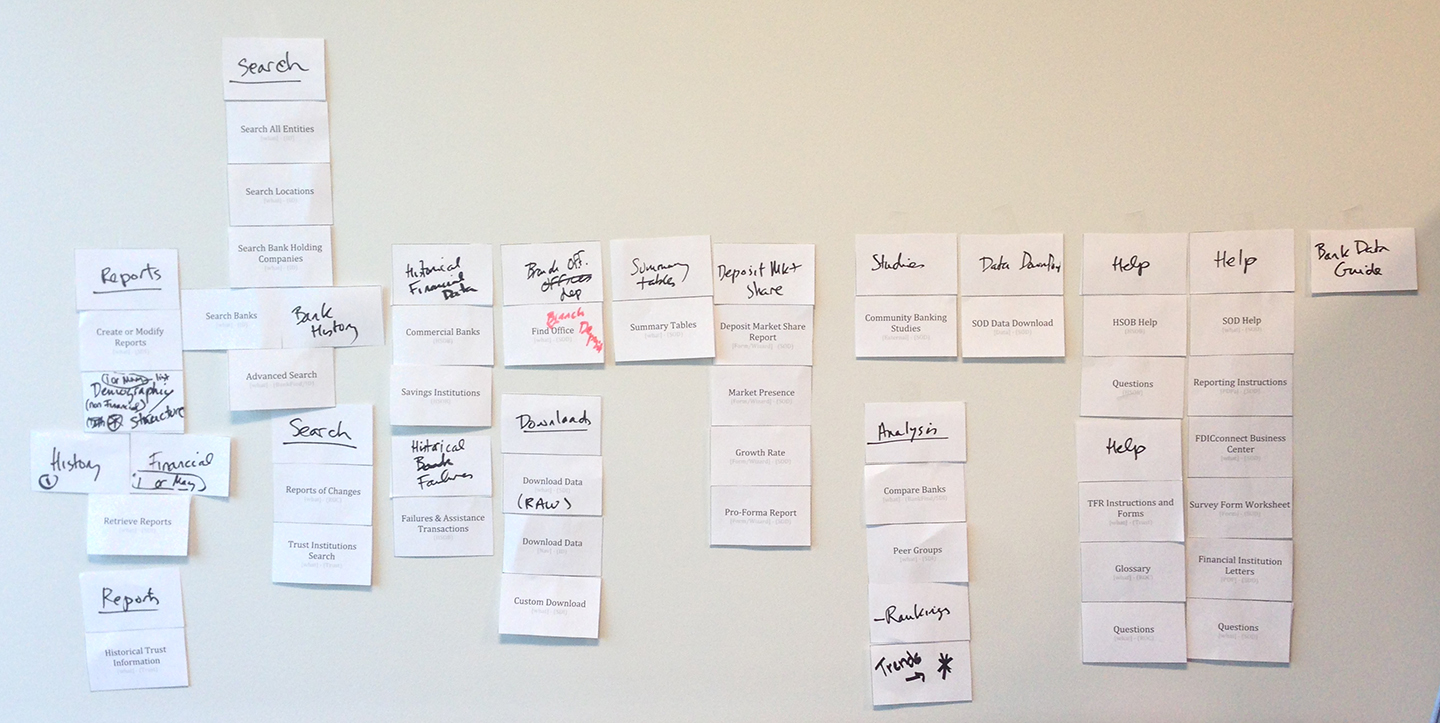 Search
Search All Entities
Search Locations
Search Bank Holding
Companies
Search Banks
Bank
History
Advanced Search
Search
Reports of Changes
Trust Institutions
Search
Reports
Create or Modify
Reports
Demographic
(non Financial)
Structure
History
1
Financial
(1 or Many)
Retrieve Reports
Reports
Historical Trust
Information
Historical
Financial
Data
Commercial Banks
Savings Institutions
Historical
Bank
Failures
Failures & Assistance
Transactions
Branch Off.
Offices
Dep
Branch
Find Office
Downloads
Download Data
(RAW)
Download Data
Custom Download
Summary
tables
Summary Tables
Deposit Mkt
Share
Deposit Market Share
Report
Market Presence
Growth Rate
Pro-Forma Report
Studies
Community Banking
Studies
Analysis
Compare Banks
Peer Groups
-Rankings
Trends
→ *
Data Download
SOD Data Download
Help
HSOB Help
Questions
Help
TFR Instructions and
Forms
Glossary
Questions
Help
SOD Help
Reporting Instructions
FDICconnect Business
Center
Survey Form Worksheet
Financial Institution
Letters
Questions
Bank Data
Guide